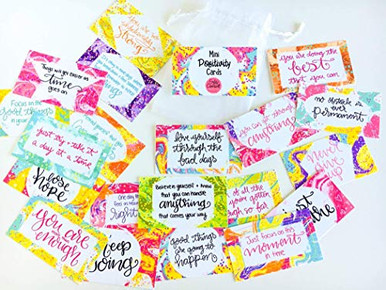 You are
Strong
Mini
Positivity
Cards
You are doing the
best
that you can
Things will get easier as
time
goes on
Focus on the
good things
just try + take it
a day at a time
love yourself
through the
bad days
You can get through
anything
no obstacle is ever
permanent
Never
give
up
choose
hope
One day
right
Believe in yourself + know
that you can handle
anything
that comes your way
of all the
you've gotten
through so far
you are
enough
keep
going
Good things
are going to
happen
Just focus on this
moment
the